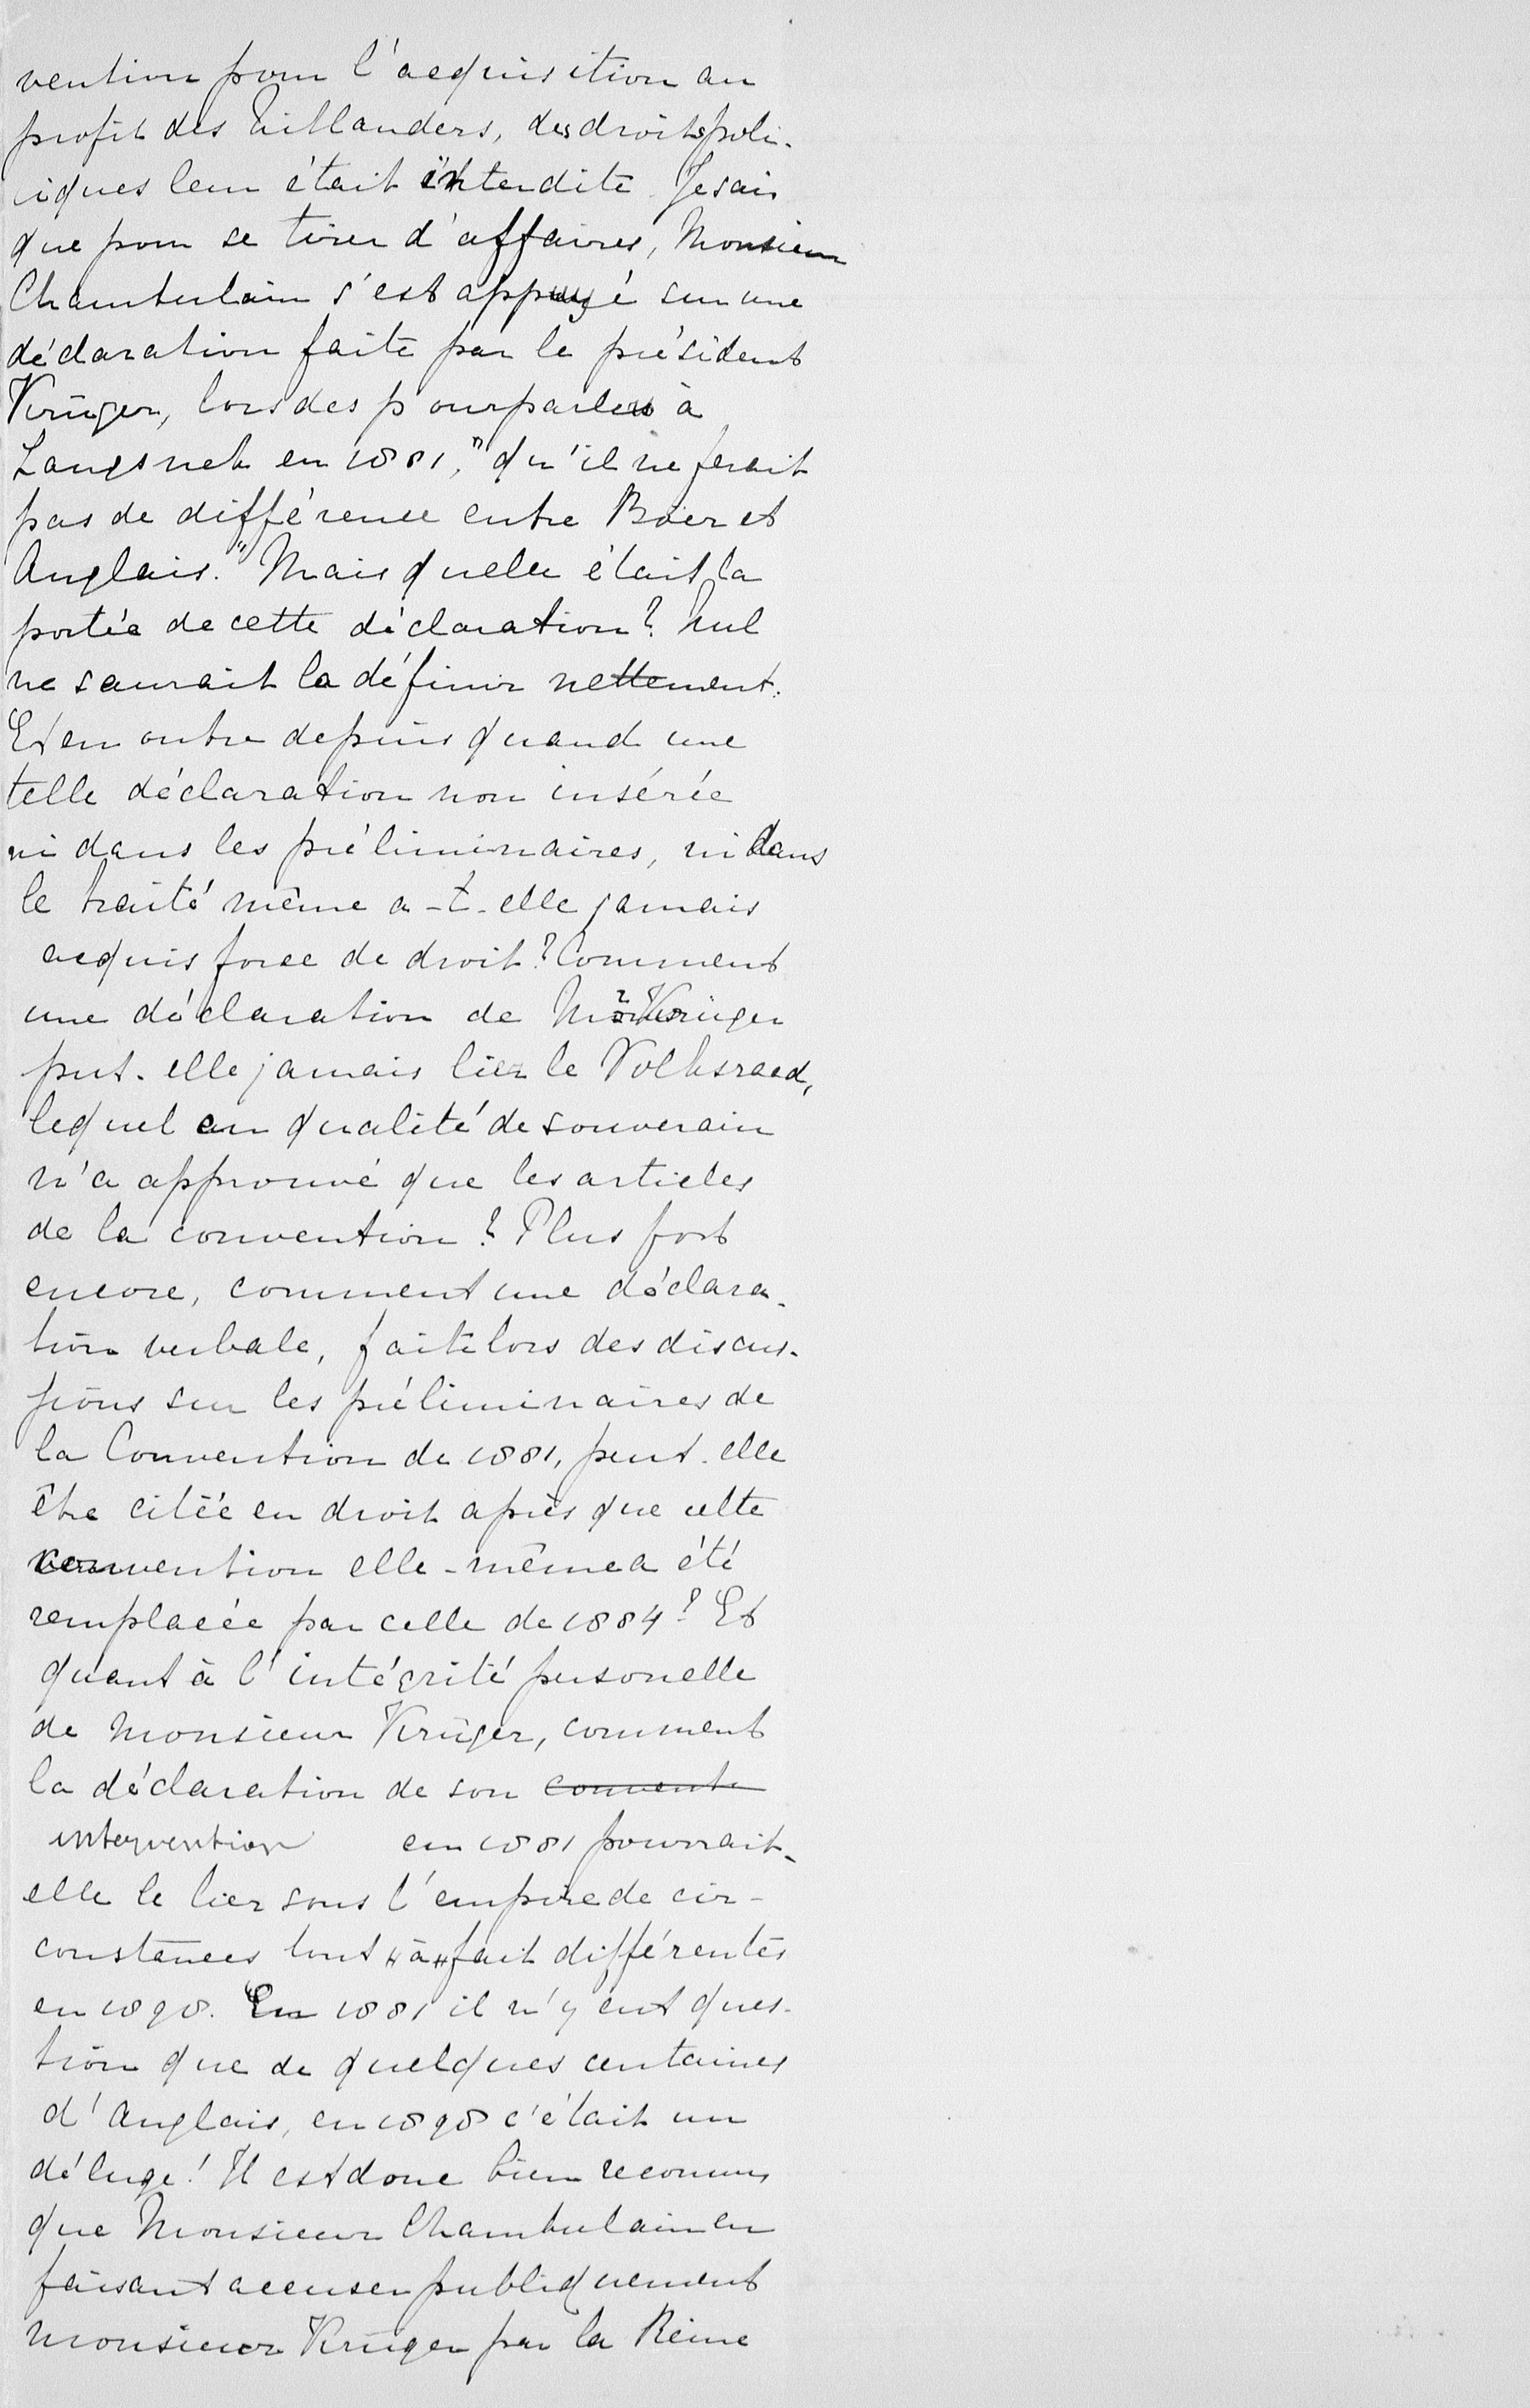 vention pour l'acquisition au
profit des Uitlanders, des droits poli-
tiques leur était interdite. Je sais
que pour se tirer d'affaires, Monsieur
Chamberlain s'est appuyé sur une
déclaration faite par le président
Krüger, lors des pourparlers à
Langsnek en 1881, "qu'il ne ferait
pas de différence entre Boër et
Anglais." Mais quelle était la
portée de cette déclaration? Nul
ne saurait la définir nettement.
Et en outre depuis quand une
telle déclaration non insérée
ni dans les préliminaires, ni dans
le traité même a-t-elle jamais
acquis force de droit? Comment
une déclaration de Mr Krüger
put-elle jamais lier le Volksraad,
lequel en qualité de souverain
n'a approuvé que les articles
de la convention? Plus fort
encore, comment une déclara-
tion verbale, faite lors des discus-
sions sur les préliminaires de
la Convention de 1881, peut-elle
être citée en droit après que cette
convention elle-même a été
remplacée par celle de 1884? Et
quant à l'intégrité personelle
de Monsieur Krüger, comment
la déclaration de son convente
intervention en 1881 pourrait-
elle le lier sous l'empire de cir-
constances tout à fait différentes
en 1898. En 1881 il n'y eut ques-
tion que de quelques centaines
d'Anglais, en 1898 c'était un
déluge! Il est donc bien reconnu
que Monsieur Chamberlain en
faisant accuser publiquement
Monsieur Krüger par la Reine